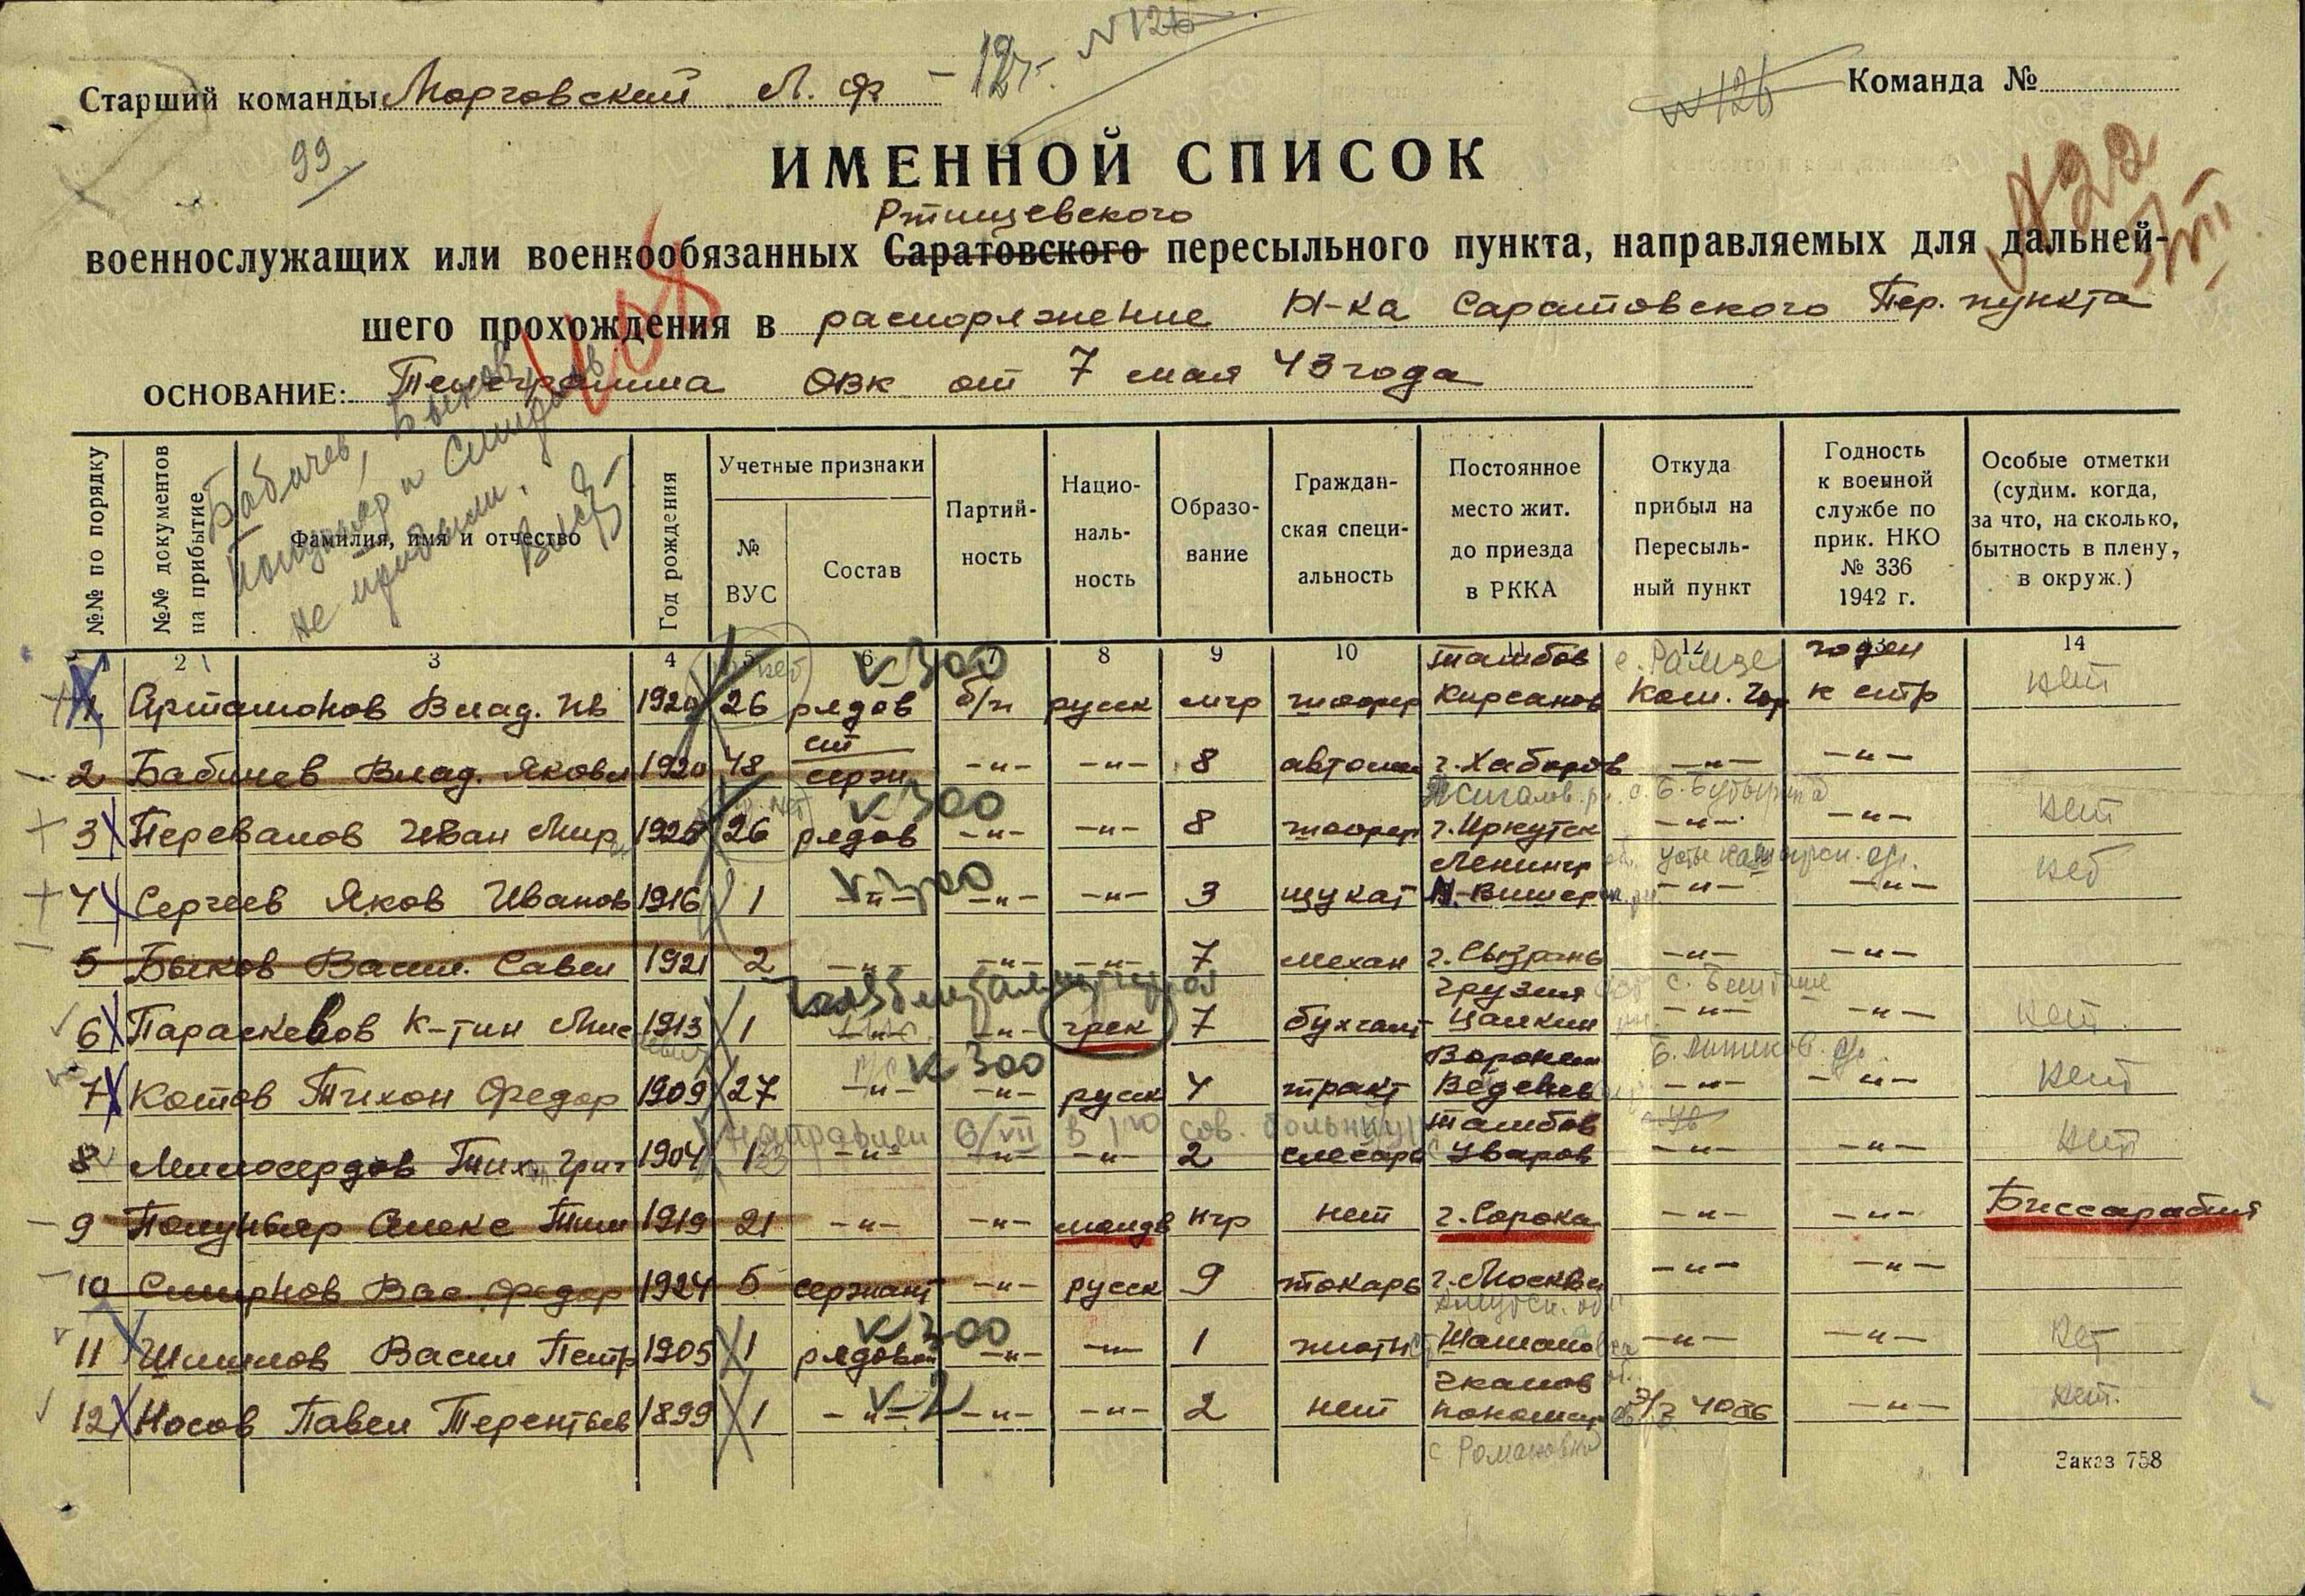 Старший команды Морговский Л. Ф – 12ч. N 126
N 126 Команда №
99
ИМЕННОЙ СПИСОК
Ртищевского
военнослужащих или военнообязанных Саратовского пересыльного пункта, направляемых для дальней-
шего прохождения в распоряжение Н-ка Саратовского Пер. пункта
ОСНОВАНИЕ: Телеграмма ОВК от 7 мая 43 года
Бабичев, Быков,
Полуньяр и Смирнов
не прибыли.
№№ по порядку
№№ документов на прибытие
Фамилия, имя и отчество
Год рождения
Учетные признаки
№ ВУС
Состав
Партий-
ность
Нацио-
наль-
ность
Образо-
вание
Граждан-
ская специ-
альность
Постоянное
место жит.
до приезда
в РККА
Откуда
прибыл на
Пересыль-
ный пункт
Годность
к военной
службе по
прик. НКО
№ 336
1942 г.
Особые отметки
(судим. когда,
за что, на сколько,
бытность в плену,
в окруж.)
1 2 3 4 5 6 7 8 9 10 11 12 13 14
к 300 Тамбов годен
1 Артамонов Влад. Ив 1920 26 рядов б/п русск мгр шофер Кирсанов Ком. Гор к стр нет
ст
2 Бабичев Влад. Яковл 1920 48 серж -"- -"- 8 автомех г. Хабаров -"- -"-
к 300
3 Перевалов Иван Мир 1925 26 рядов -"- -"- 8 шофер г. Иркутск -"- -"- нет
к 300 Ленингр
4 Сергеев Яков Иванов 1916 1 -"- -"- -"- 3 щукат М-Вишер -"- -"- нет
5 Быков Васил. Савел 1921 2 -"- -"- -"- 7 механ г. Сызрань -"- -"-
Грузия
6 Параскевов К-тин Мих 1913 1 -"- -"- грек 7 бухгалт Цалкин -"- -"- нет
к 300 Воронеж
7 Котов Тихон Федор 1909 27 -"- -"- русск 4 тракт Веденев -"- -"- нет
направлен 6/VII в сов. больницу Тамбов
8 Милосердов Тих. Григ 1904 1 -"- -"- -"- 2 слесарь Уваров -"- -"- нет
9 Полуньяр Алекс Тим 1919 21 -"- -"- молдв нгр нет г. Сорока -"- -"- Биссарабия
10 Смирнов Вас. Федор 1924 5 сержант -"- русск 9 токарь г. Москва -"- -"-
к 300
11 Шишлов Васил Петр 1905 1 рядовой -"- -"- 1 плотн Шамано -"- -"- нет
к 2 Чкалов
12 Носов Павел Терентьев 1899 1 -"- -"- -"- 2 нет Пономар Э/г 4086 -"- нет
с Романовка
Заказ 758